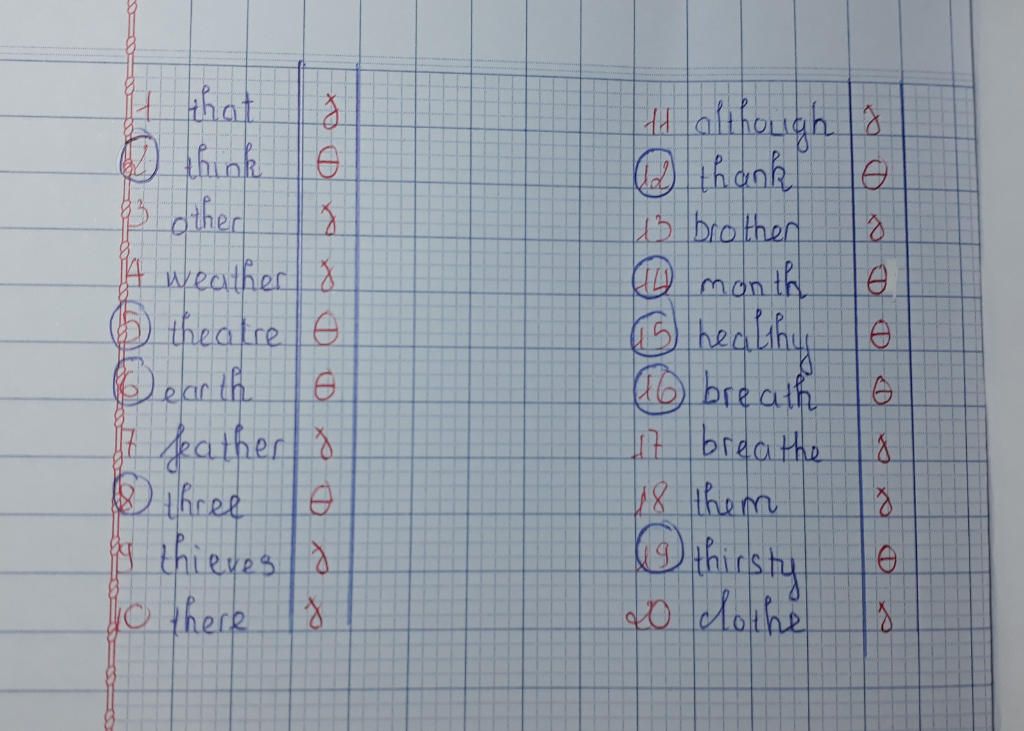 1 that ɣ
2 think θ
3 other ɣ
4 weather ɣ
5 theatre θ
6 earth θ
7 feather ɣ
8 three θ
9 thieves ɣ
10 there ɣ
11 although ɣ
12 thank θ
13 brother ɣ
14 month θ
15 healthy θ
16 breath θ
17 breathe ɣ
18 them ɣ
19 thirsty θ
20 clothe ɣ